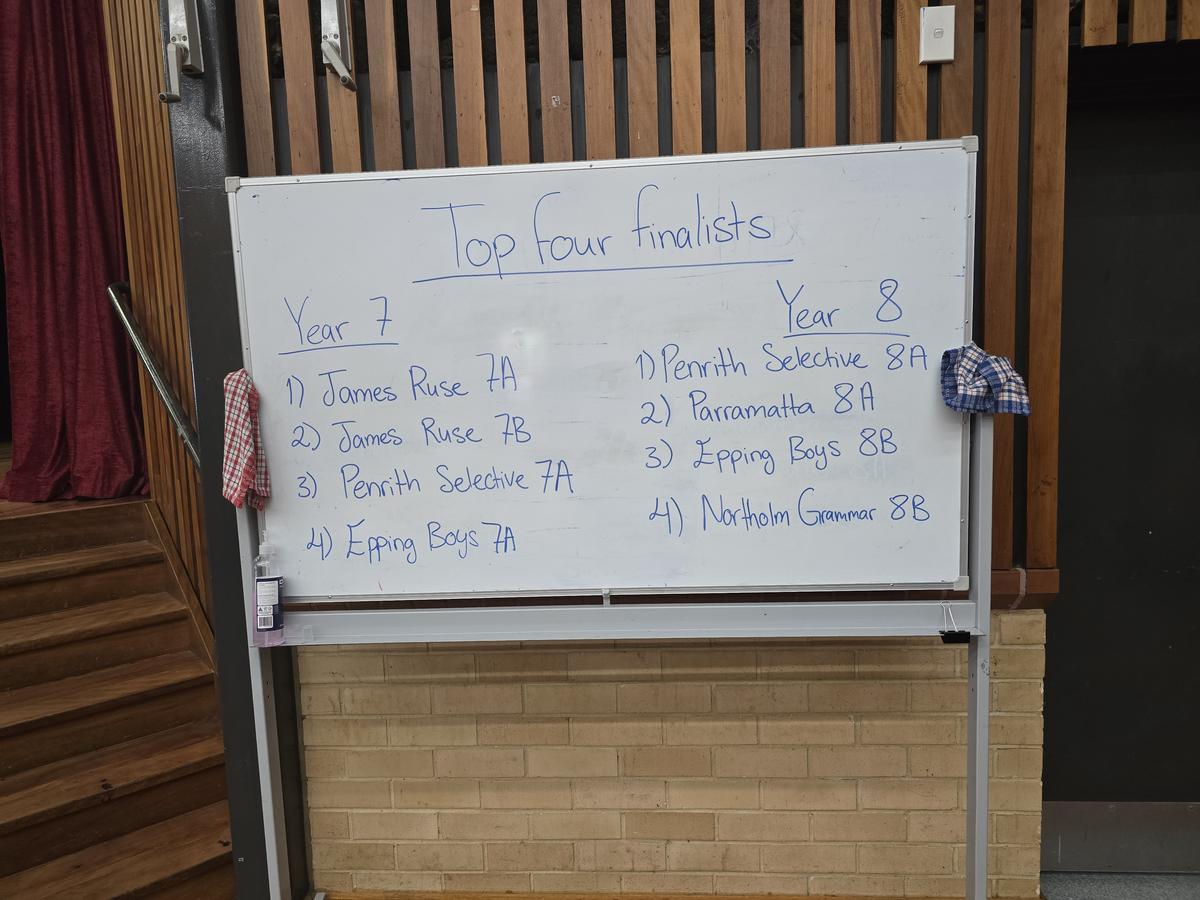 Top four finalists
Year 7
1) James Ruse 7A
2) James Ruse 7B
3) Penrith Selective 7A
4) Epping Boys 7A
Year 8
1) Penrith Selective 8A
2) Parramatta 8A
3) Epping Boys 8B
4) Northolm Grammar 8B